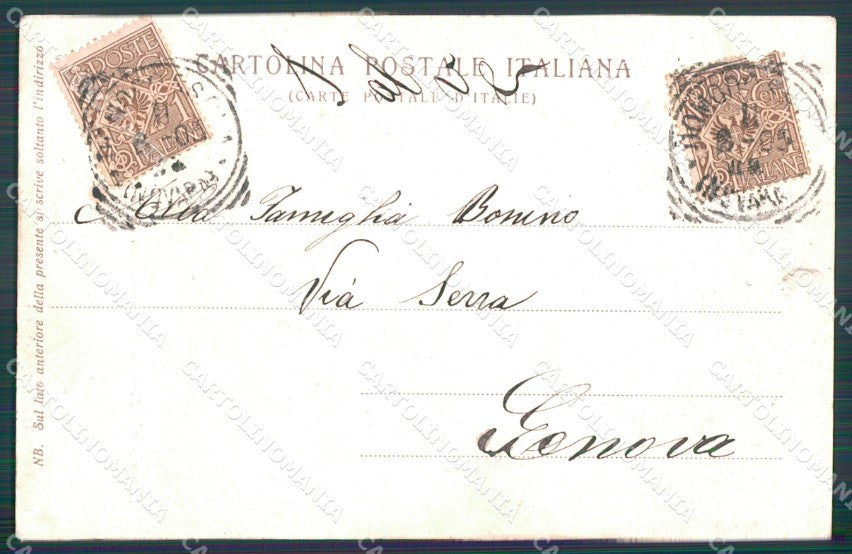 CARTOLINA POSTALE ITALIANA
(CARTE POSTALE D'ITALIE)
POSTE
1
ITALIANE
ITALIANE
Alla Famiglia Bonino
Via Serra
Genova
NB. Sul lato anteriore della presente si scrive soltanto l'indirizzo
CARTOLINOMANIA